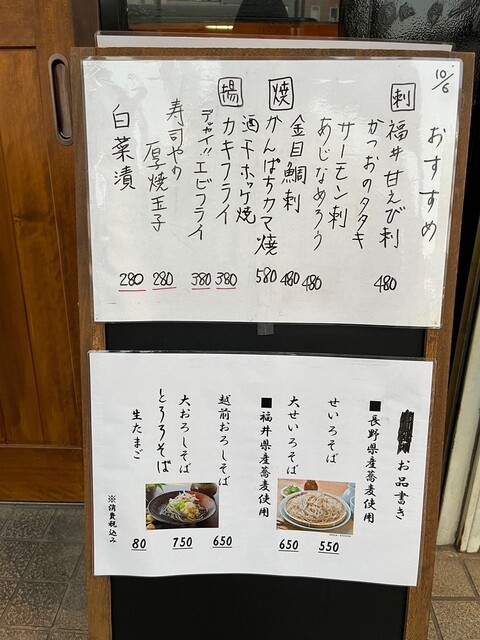 10/6
おすすめ
刺
福井甘えび刺 480
かつおのタタキ
サーモン刺
あじなめろう 480
金目鯛刺 480
焼
かんぱちカマ焼 580
酒干ホッケ焼
揚
カキフライ 380
デカイ!!エビフライ 380
寿司やの
厚焼玉子 280
白菜漬 280
お品書き
■長野県産蕎麦使用
せいろそば 550
大せいろそば 650
■福井県産蕎麦使用
越前おろしそば 650
大おろしそば 750
とろろそば
生たまご 80
※消費税込み